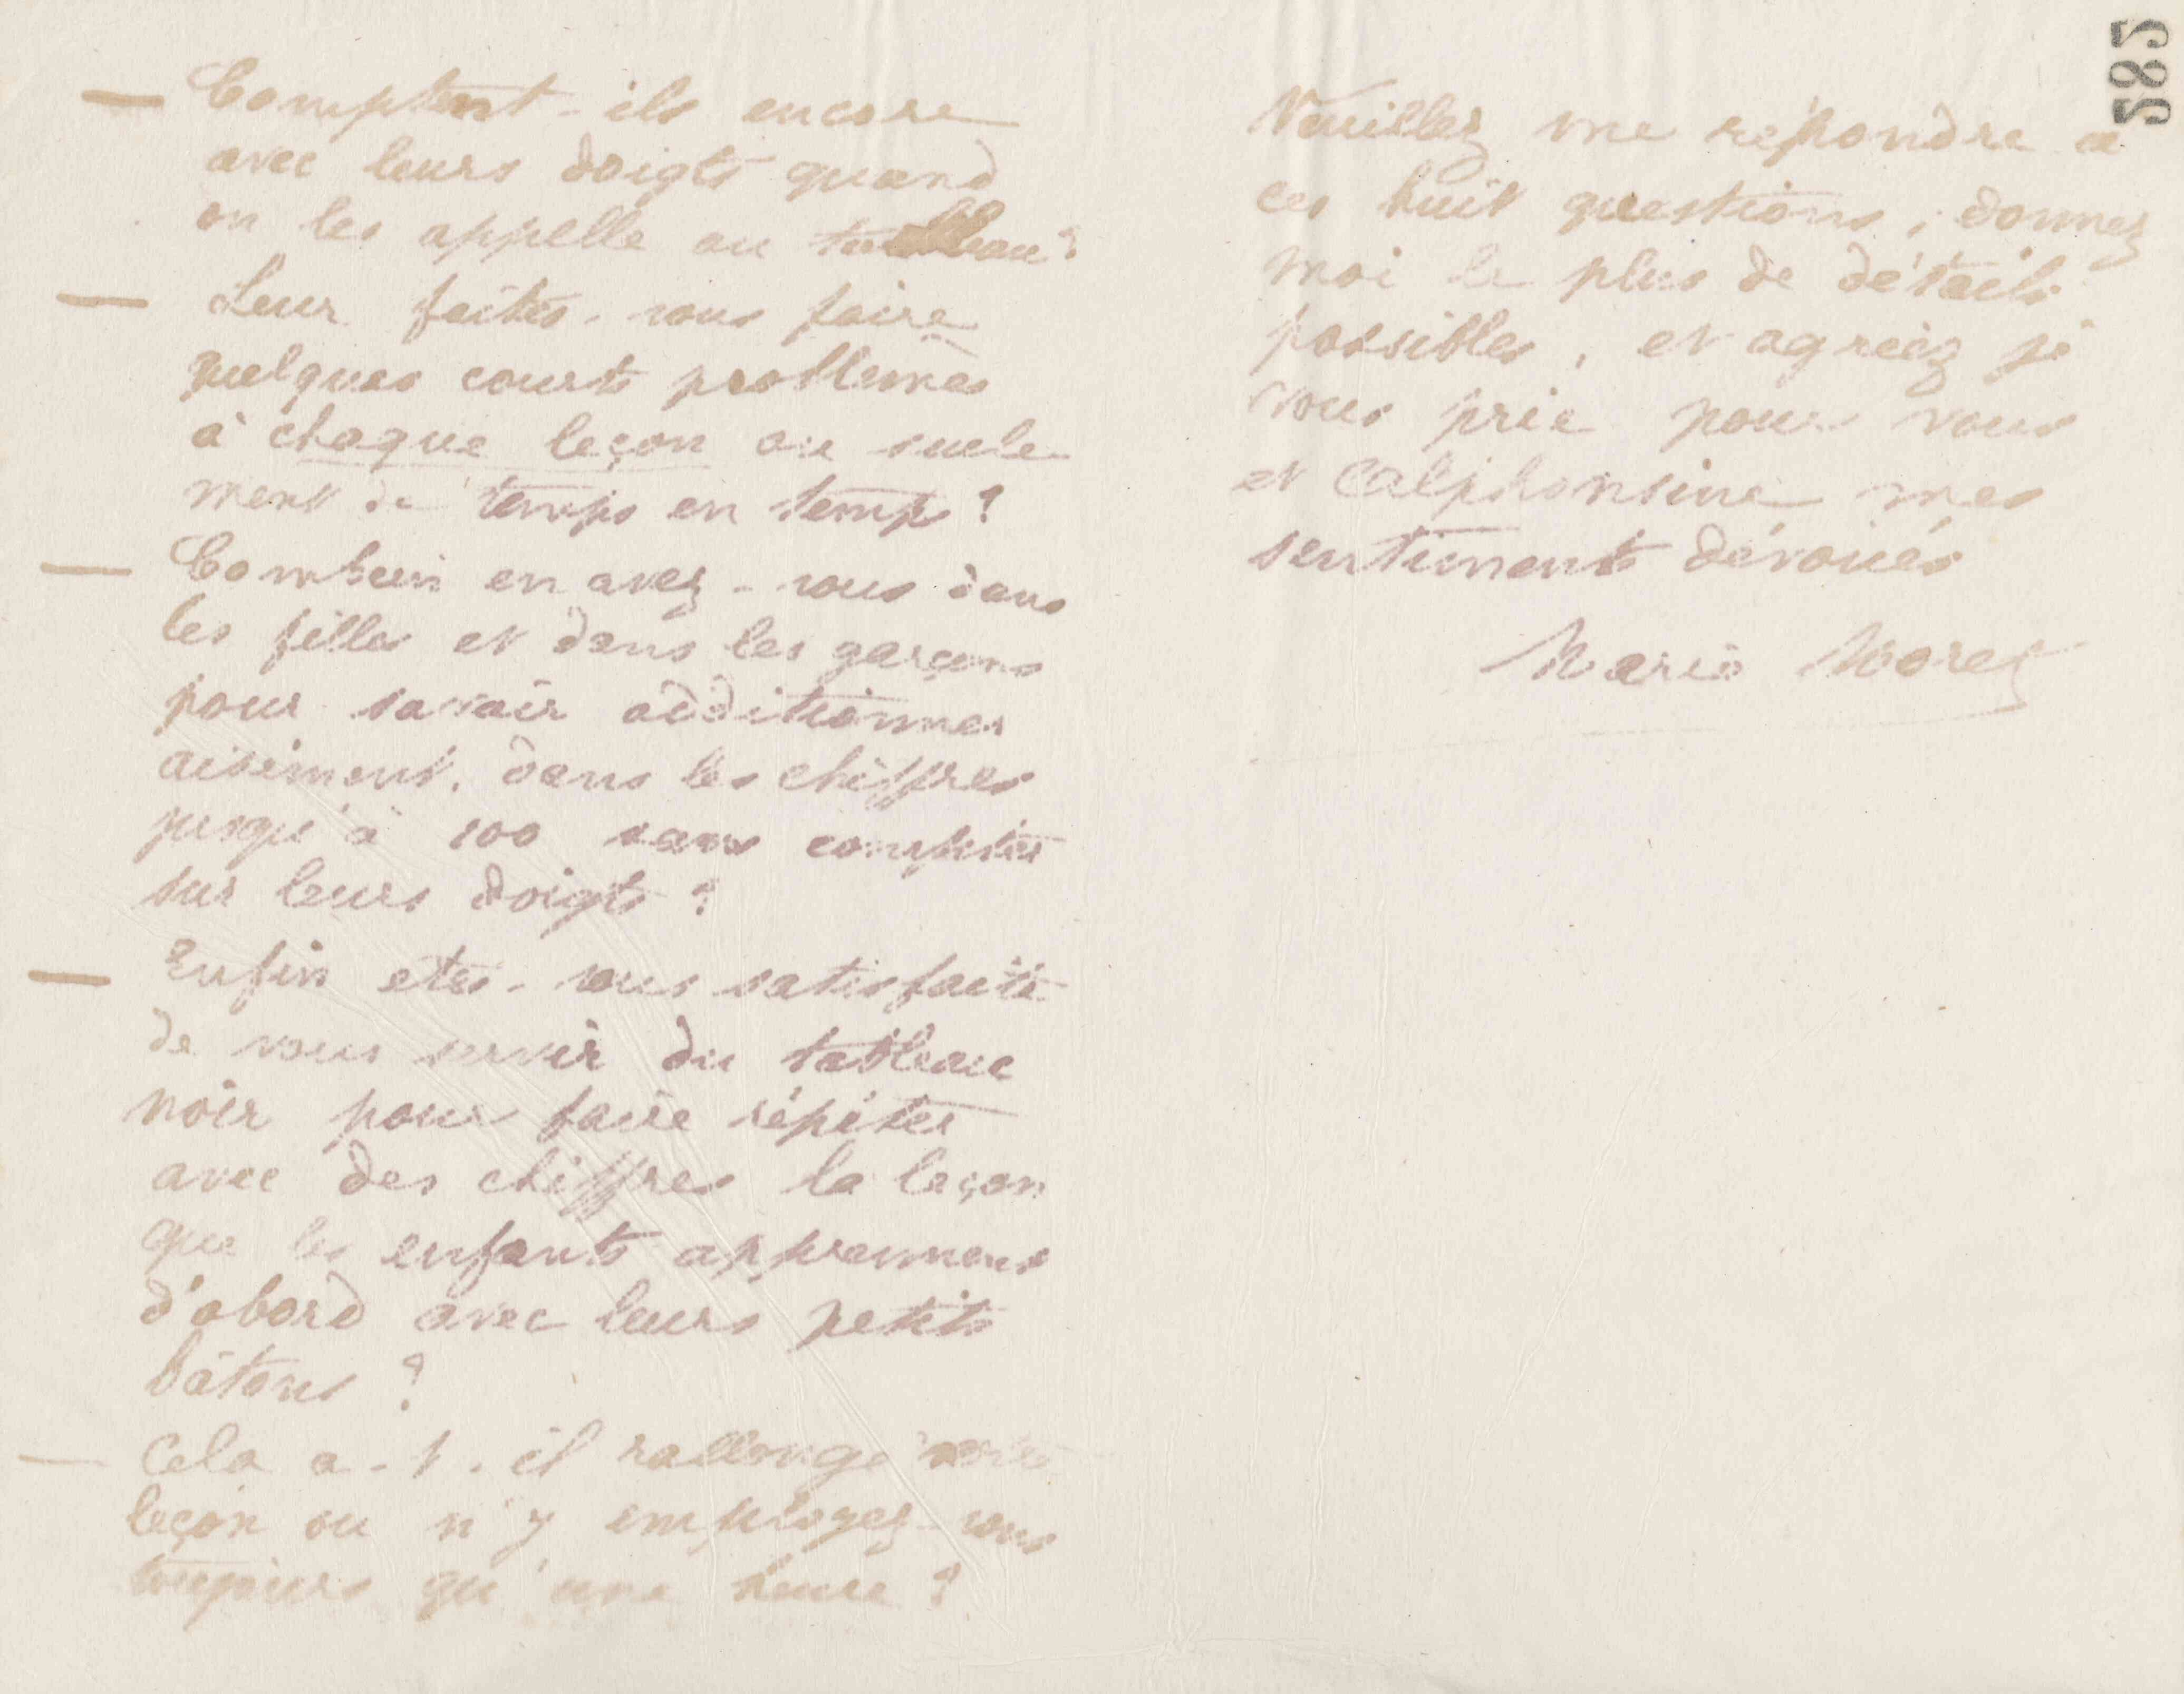 — Comptent-ils encore
avec leurs doigts quand
on les appelle au tableau ?
— Leur faites-vous faire
quelques courts problèmes
à chaque leçon ou seule-
ment de temps en temps ?
— Combien en avez-vous dans
les filles et dans les garçons
pour savoir additionner
aisément, dans les chiffres
jusqu'à 100 sans compter
sur leurs doigts ?
— Enfin etes-vous satisfaite
de vous servir du tableau
noir pour faire répéter
avec des chiffres la leçon
que les enfants apprennent
d'abord avec leurs petits
bâtons ?
— Cela a-t-il rallongé votre
leçon ou n'y employez-vous
toujours qu'une heure ?
Veuillez me répondre a
ces huit questions, donnez
moi le plus de détails
possibles, et agréez je
vous prie pour vous
et Alphonsine mes
sentiments dévoués
Marie Moret
585